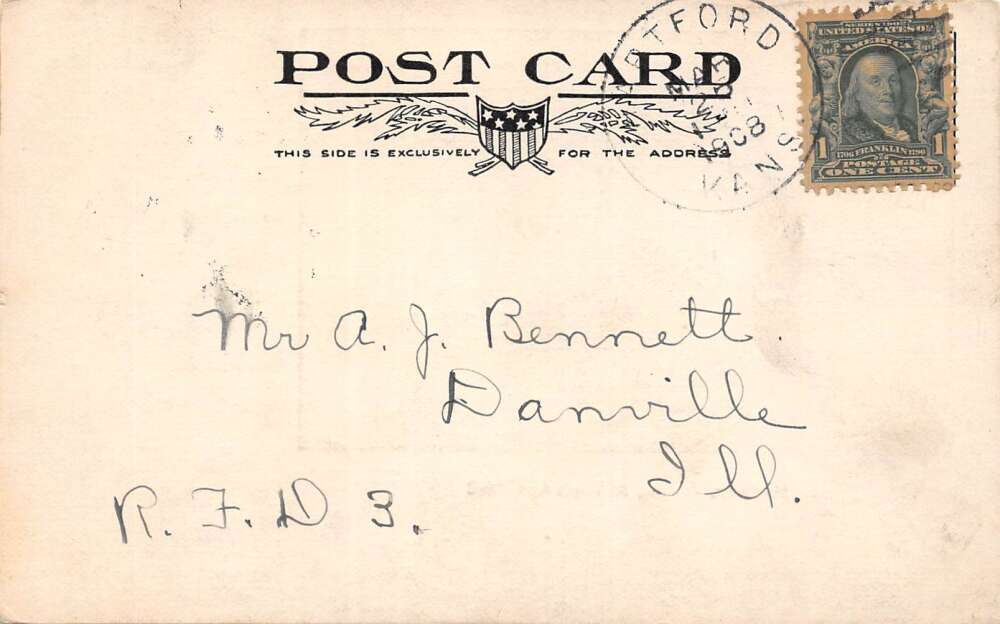 POST CARD
THIS SIDE IS EXCLUSIVELY FOR THE ADDRESS
RTFORD
MAR
1908
KANS
SERIES 1902
UNITED STATES OF
AMERICA
1706 FRANKLIN 1790
1 1
POSTAGE
ONE CENT
Mr A. J. Bennett
Danville
Ill.
R. F. D 3.